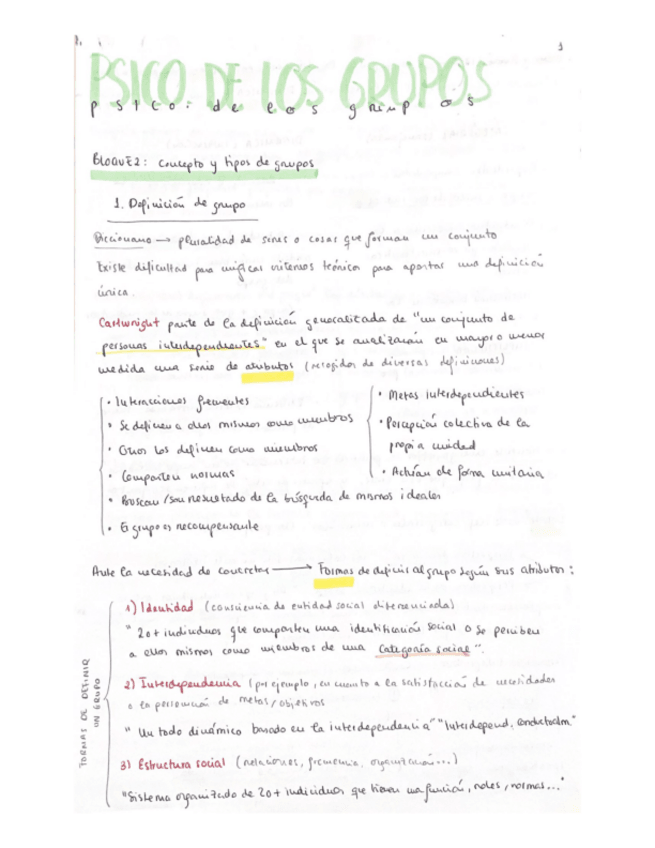 1
PSICO DE LOS GRUPOS
psico: de los grupos
BLOQUE 2: Concepto y tipos de grupos
1. Definición de grupo
Diccionario → pluralidad de seres o cosas que forman un conjunto
Existe dificultad para unificar criterios teóricos para aportar una definición
única.
Cartwright parte de la definición generalizada de "un conjunto de
personas interdependientes" en el que se analizarán en mayor o menor
medida una serie de atributos (recogidos de diversas definiciones)
• Interacciones frecuentes
• Se definen a ellos mismos como miembros
• Otros los definen como miembros
• Comparten normas
• Buscan / son resultado de la búsqueda de mismos ideales
• El grupo es recompensante
• Metas interdependientes
• Percepción colectiva de la
propia unidad
• Actúan de forma unitaria
Ante la necesidad de concretar → Formas de definir al grupo según sus atributos:
FORMAS DE DEFINIR
UN GRUPO
1) Identidad (consciencia de entidad social diferenciada)
" 2 o + individuos que comparten una identificación social o se perciben
a ellos mismos como miembros de una categoría social".
2) Interdependencia (por ejemplo, en cuanto a la satisfacción de necesidades
o la persecución de metas/objetivos
" Un todo dinámico basado en la interdependencia" "Interdepend. conductual"
3) Estructura social (relaciones, jerarquía, organización...)
"Sistema organizado de 2 o + individuos que tienen una función, roles, normas..."